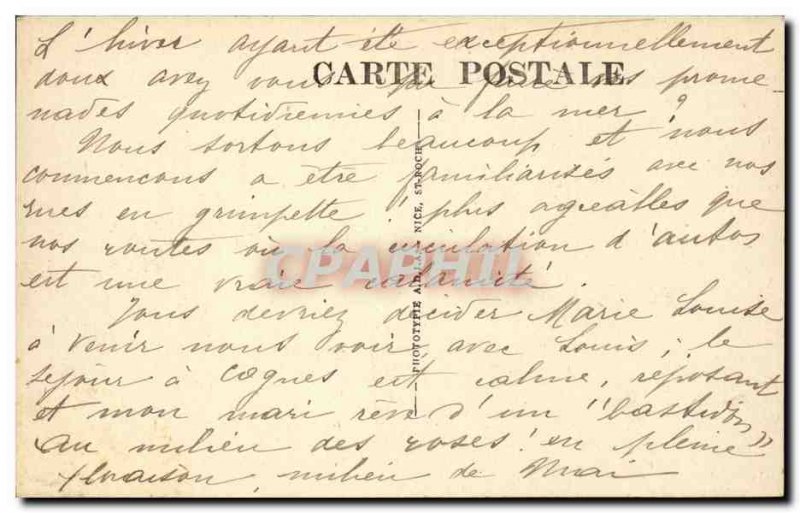 L'hiver ayant été exceptionnellement
doux avez vous pu faire vos prome-
CARTE POSTALE
nades quotidiennes à la mer ?
Nous sortons beaucoup et nous
commencons a être familiarisés avec nos
rues en grimpette ! plus agréables que
nos routes où la circulation d'autos
est une vraie calamité.
Vous devriez décider Marie Louise
à venir nous voir avec Louis ; le
séjour à Cagnes est calme, reposant
et mon mari rêve d'un "bastidon"
au milieu des roses ! en pleine
floraison, milieu de Mai
PHOTOTYPIE A.D. NICE, ST-ROCH
CPARHII